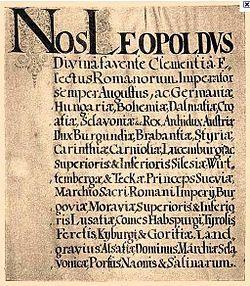 NOS LEOPOLDVS
Divinâ favente Clementiâ E,
lectus Romanorum Imperator
semper Augustus, ac Germaniæ
Hungariæ, Bohemiæ, Dalmatiæ, Croa,
tiæ, Sclavoniæ Rex, Archidux Austriæ
Dux Burgundiæ, Brabantiæ, Styriæ
Carinthiæ, Carnioliæ, Lucemburgiæ ac
Superioris & Inferioris Silesiæ, Wirt,
tembergæ, & Teckæ, Princeps Sueviæ,
Marchio Sacri Romani Imperij, Bur,
goviæ Moraviæ, Superioris & Inferio,
ris Lusatiæ, Comes Habspurgi, Tyrolis
Feretis Kyburgi & Goritiæ, Land,
gravius Alsatiæ, Dominus Marchiæ Scla,
vonicæ, Portus Naonis & Salinarum.